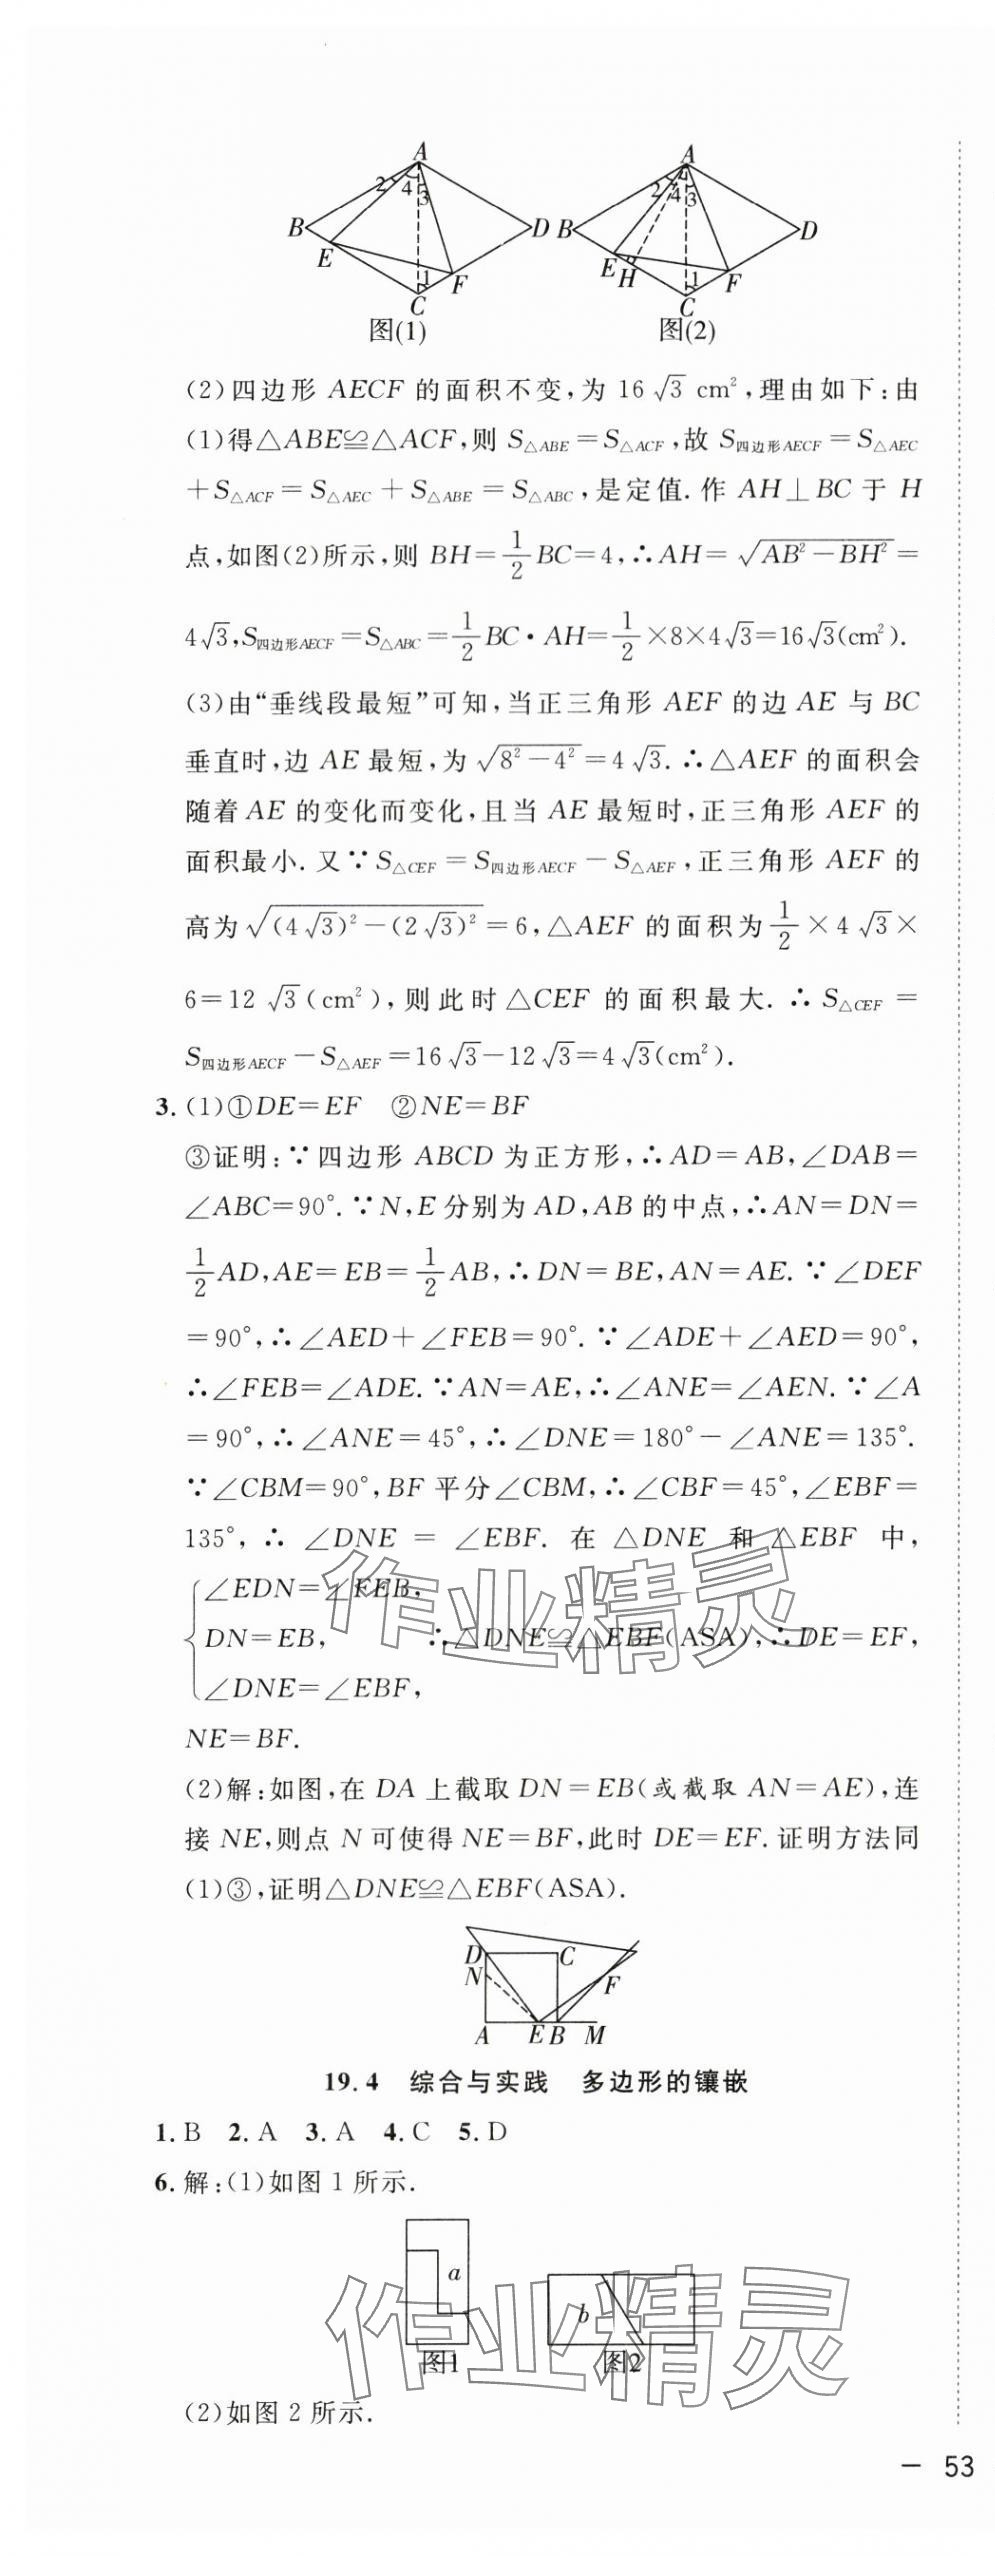 A
2 4 3
B
E
D
1
F
C
图(1)
A
2 4 3
B
E
H
D
1
F
C
图(2)
(2)四边形 AECF 的面积不变,为 16√3 cm²,理由如下:由
(1)得△ABE≌△ACF,则 S△ABE=S△ACF,故 S四边形AECF=S△AEC
+S△ACF=S△AEC+S△ABE=S△ABC,是定值.作 AH⊥BC 于 H
点,如图(2)所示,则 BH=1/2BC=4,∴AH=√(AB²-BH²)=
4√3,S四边形AECF=S△ABC=1/2BC·AH=1/2×8×4√3=16√3(cm²).
(3)由“垂线段最短”可知,当正三角形 AEF 的边 AE 与 BC
垂直时,边 AE 最短,为√(8²-4²)=4√3.∴△AEF 的面积会
随着 AE 的变化而变化,且当 AE 最短时,正三角形 AEF 的
面积最小.又∵S△CEF=S四边形AECF-S△AEF,正三角形 AEF 的
高为√((4√3)²-(2√3)²)=6,△AEF 的面积为1/2×4√3×
6=12√3(cm²),则此时△CEF 的面积最大.∴S△CEF=
S四边形AECF-S△AEF=16√3-12√3=4√3(cm²).
3.(1)①DE=EF ②NE=BF
③证明:∵四边形 ABCD 为正方形,∴AD=AB,∠DAB=
∠ABC=90°.∵N,E分别为 AD,AB 的中点,∴AN=DN=
1/2AD,AE=EB=1/2AB,∴DN=BE,AN=AE.∵∠DEF
=90°,∴∠AED+∠FEB=90°.∵∠ADE+∠AED=90°,
∴∠FEB=∠ADE.∵AN=AE,∴∠ANE=∠AEN.∵∠A
=90°,∴∠ANE=45°,∴∠DNE=180°-∠ANE=135°.
∵∠CBM=90°,BF 平分∠CBM,∴∠CBF=45°,∠EBF=
135°,∴∠DNE=∠EBF.在△DNE 和△EBF 中,
∠EDN=∠FEB,
DN=EB, ∴△DNE≌△EBF(ASA),∴DE=EF,
∠DNE=∠EBF,
NE=BF.
(2)解:如图,在 DA 上截取 DN=EB(或截取 AN=AE),连
接 NE,则点 N 可使得 NE=BF,此时 DE=EF.证明方法同
(1)③,证明△DNE≌△EBF(ASA).
D
C
N
F
A
E
B
M
19.4 综合与实践 多边形的镶嵌
1.B 2.A 3.A 4.C 5.D
6.解:(1)如图 1 所示.
a
b
图1
图2
(2)如图 2 所示.
— 53
作业精灵
作业精灵